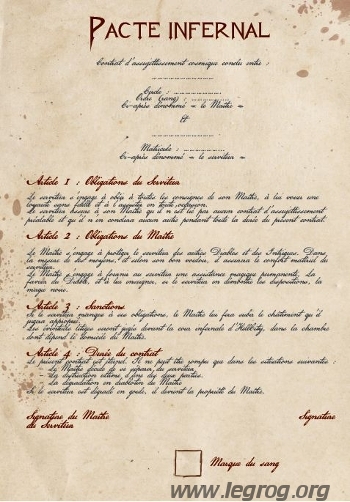 PACTE INFERNAL
Contrat d'assujettissement cosmique conclu entre :
........................
Cycle : ..................
Ordre (rang) : ..................
Ci-après dénommé « le Maître »
Et
........................
Matricule : ..................
Ci-après dénommé « le serviteur »
Article 1 : Obligations du Serviteur
Le serviteur s'engage à obéir à toutes les consignes de son Maître, à lui vouer une
loyauté sans faille et à l'assister en toute occasion.
Le serviteur assure à son Maître qu'il n'est lié par aucun contrat d'assujettissement
préalable et qu'il n'en conclura aucun autre pendant toute la durée du présent contrat.
Article 2 : Obligations du Maître
Le Maître s'engage à protéger le serviteur des autres Diables et des Intrigues. Dans
la mesure de ses moyens, et selon son bon vouloir, il assurera le confort matériel du
serviteur.
Le Maître s'engage à fournir au serviteur une assistance magique permanente. La
faveur du Diable, et à lui enseigner, si le serviteur en démontre les dispositions, la
magie noire.
Article 3 : Sanctions
Si le serviteur manque à ses obligations, le Maître lui fera subir le châtiment qu'il
jugera approprié.
Les éventuels litiges seront jugés devant la cour infernale d'Hellcity, dans la chambre
dont dépend le domicile du Maître.
Article 4 : Durée du contrat
Le présent contrat est éternel. Il ne peut être rompu que dans les situations suivantes :
- Le Maître décide de se séparer du serviteur
- La destruction ultime d'une des deux parties.
- La dégradation en diablotin du Maître
Si le serviteur est dégradé en goule, il devient la propriété du Maître.
Signature du Maître
Signature
du Serviteur
Marque du sang
www.legrog.org